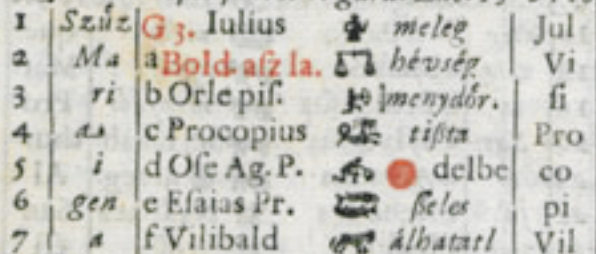 1 Szűz G 3. Iulius meleg Jul
2 Ma a Bold. aſz la. hévség Vi
3 ri b Orle piſ. menydőr. ſi
4 c Procopius tißta Pro
5 i d Oſe Ag. P. delbe co
6 gen e Eſaias Pr. ßeles pi
7 a f Vilibald Vil